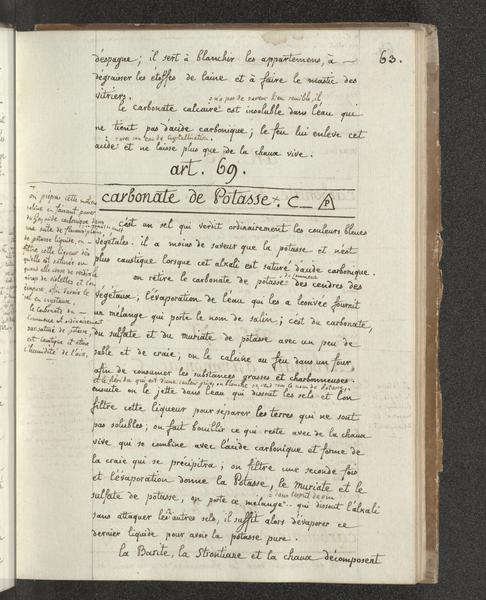 63.
d'espagne; il sert à blanchir les appartemens, à
dégraisser les étoffes de laine et à faire le mastic des
vitriers.
n'a pas de saveur bien sensible, il
le carbonate calcaire est insoluble dans l'eau qui
ne tient pas d'acide carbonique; le feu lui enleve cet
acide et ne laisse plus que de la chaux vive.
art. 69.
carbonate de Potasse. C P
c'est un sel qui verdit ordinairement les couleurs bleues
végétales. il a moins de saveur que la potasse et n'est
plus caustique lorsque cet alkali est saturé d'acide carbonique.
on retire le carbonate de potasse des cendres des
végétaux; l'évaporation de l'eau qui les a lessivée fournit
un mélange qui porte le nom de salin; c'est du carbonate,
du sulfate et du muriate de potasse avec un peu de
sable et de craie; on le calcine au feu dans un four
afin de consumer les substances grasses et charbonneuses.
ensuite on le jette dans l'eau qui dissout les sels et l'on
filtre cette liqueur pour separer les terres qui ne sont
pas solubles; on fait bouillir ce qui reste avec de la chaux
vive qui se combine avec l'acide carbonique et forme de
la craie qui se précipitra; on filtre une seconde fois
et l'évaporation donne la Potasse, le Muriate et le
sulfate de potasse, on porte ce mélange dans l'esprit de vin qui dissout l'alkali
sans attaquer les autres sels, il suffit alors d'évaporer ce
dernier liquide pour avoir la potasse pure.
la Barite, la Strontiane et la chaux décomposent
on prépare cette matiere
saline en faisant passer
du gaz acide carbonique dans
de potasse liquide, on
filtre cette liqueur dès
qu'elle est saturée ou
quand elle cesse de verdir le
sirop de violettes et l'on
évapore afin d'avoir le
sel en crystaux.
le carbonate du
commerce est ordinairement
sursaturé de potasse, il
est caustique et attire
l'humidité de l'air.